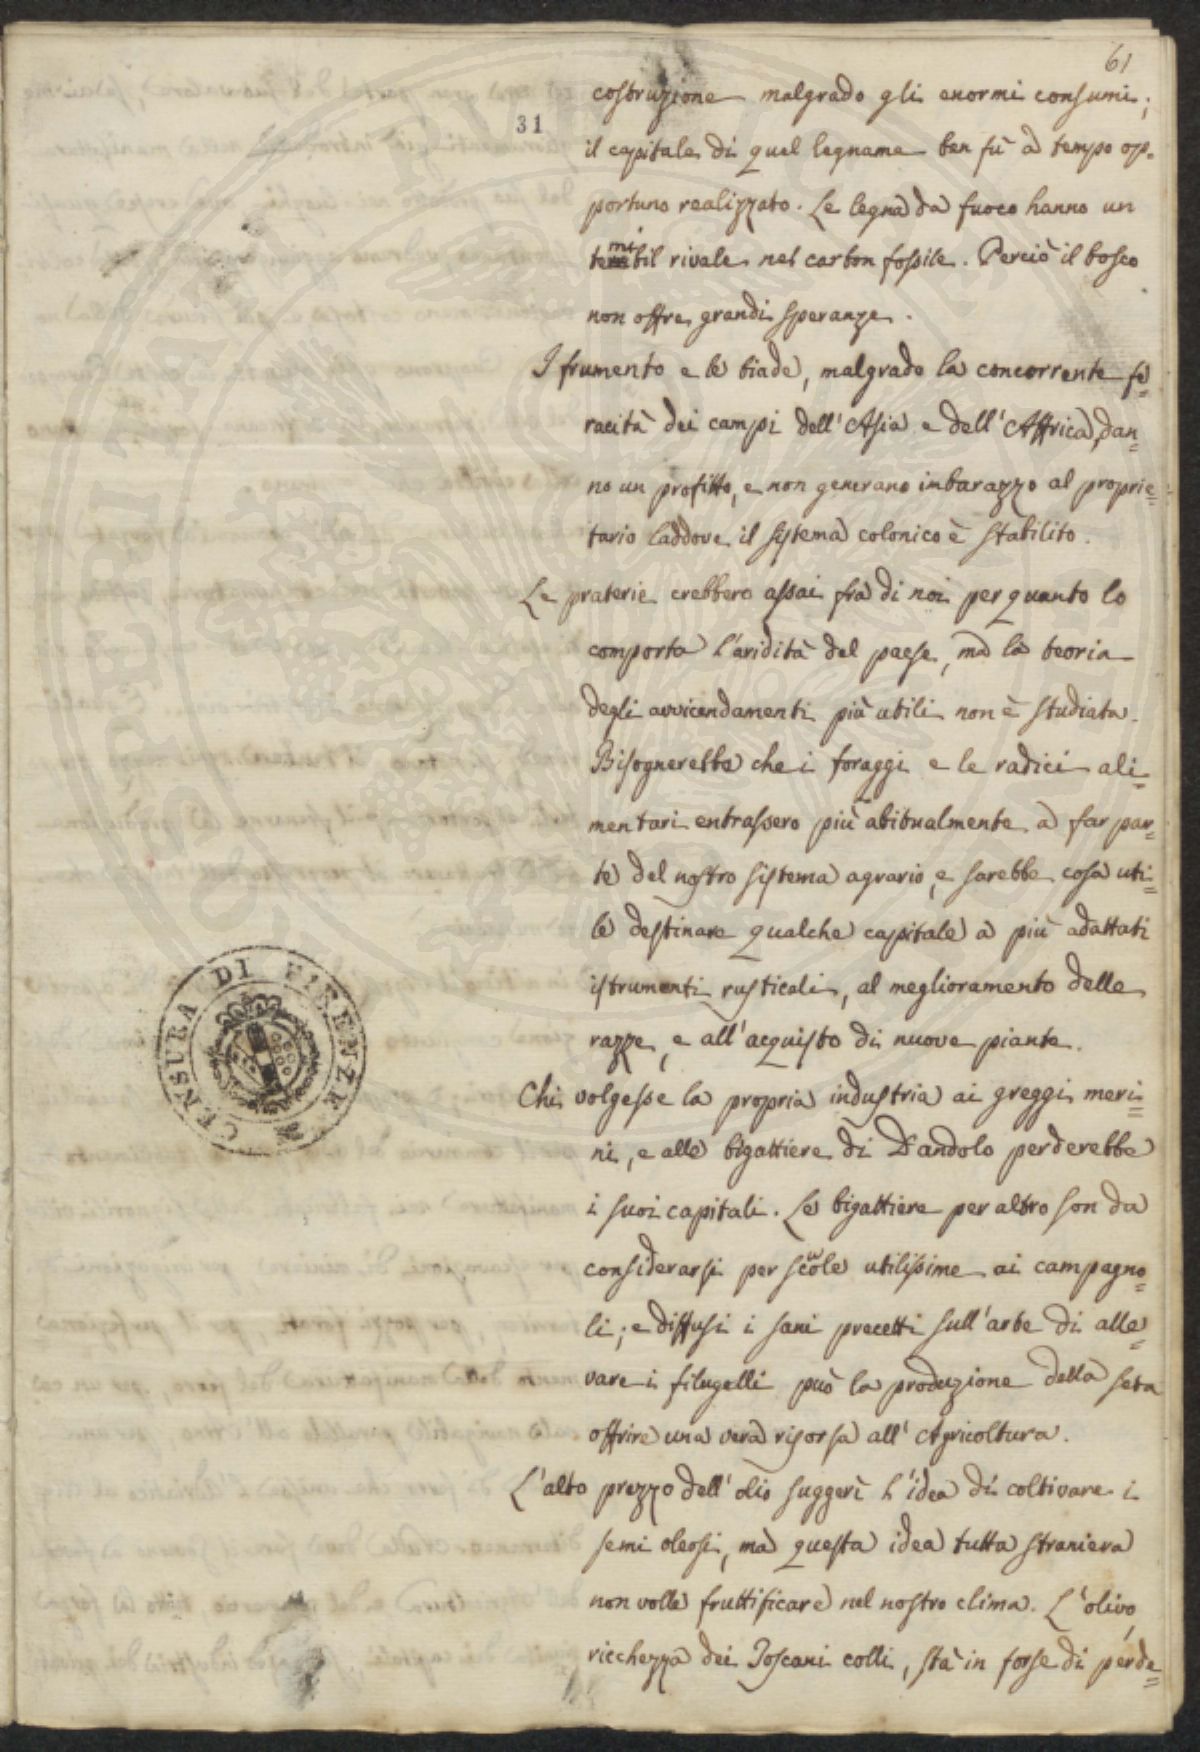 61
31
costruzione malgrado gli enormi consumi;
il capitale di quel legname ben fù a tempo op-
portuno realizzato. Le legna da fuoco hanno un
temibil rivale nel carbon fossile. Perciò il bosco
non offre grandi speranze.
I frumento e le biade, malgrado la concorrente fe=
racità dei campi dell'Asia e dell'Affrica, dan=
no un profitto, e non generano imbarazzo al proprie=
tario laddove il sistema colonico è stabilito.
Le praterie crebbero assai frà di noi per quanto lo
comporta l'aridità del paese, mà la teoria
degli avvicendamenti più utili non è studiata.
Bisognerebbe che i foraggi e le radici ali=
mentari entrassero più abitualmente a far par=
te del nostro sistema agrario, e sarebbe cosa uti=
le destinare qualche capitale a più adattati
istrumenti rusticali, al meglioramento delle
razze, e all'acquisto di nuove piante.
Chi volgesse la propria industria ai greggi meri=
ni, e alle bigattiere di Dandolo perderebbe
i suoi capitali. Le bigattiere per altro son da
considerarsi per scuole utilissime ai campagno=
li; e diffusi i sani precetti sull'arte di alle=
vare i filugelli può la produzione della seta
offrire una vera risorsa all'Agricoltura.
L'alto prezzo dell'olio suggerì l'idea di coltivare i
semi oleosi, mà questa idea tutta straniera
non volle fruttificare nel nostro clima. L'olivo,
ricchezza dei Toscani colli, stà in forse di perde=
CENSURA DI FIRENZE